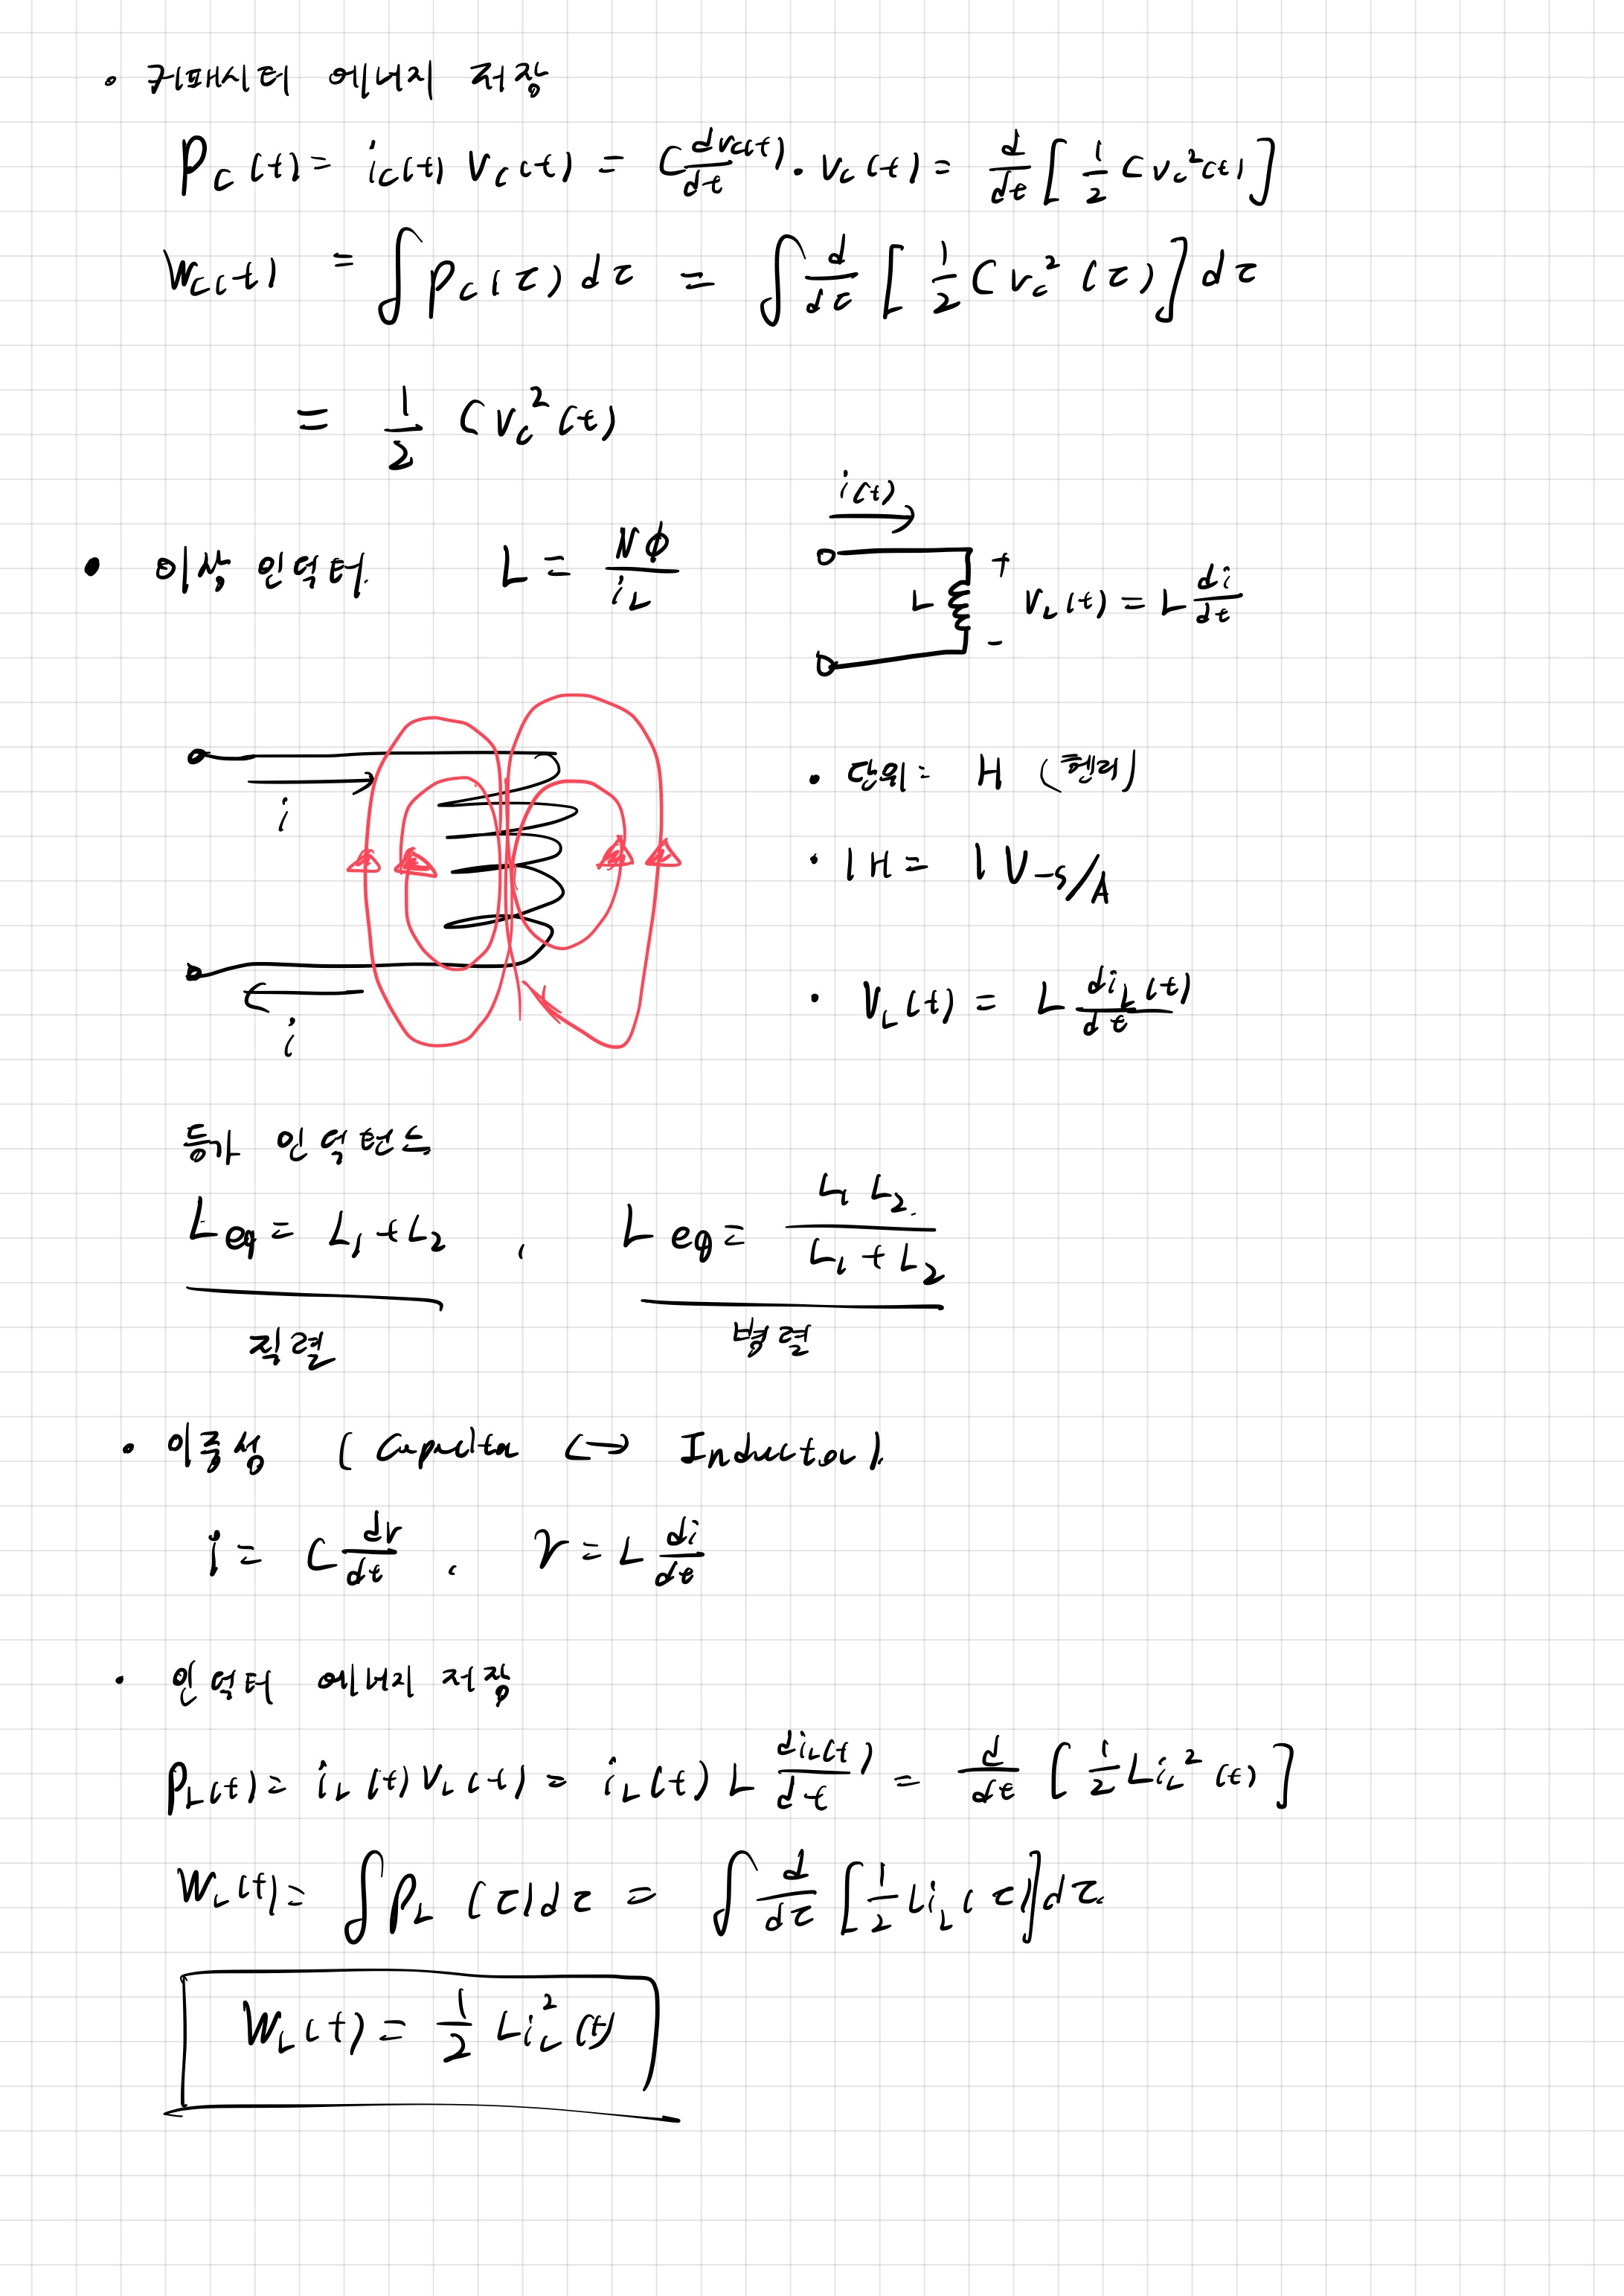 • 커패시터 에너지 저장
P_C(t) = i_C(t) V_C(t) = C dv_C(t)/dt · V_C(t) = d/dt [ 1/2 C v_C²(t) ]
W_C(t) = ∫ P_C(τ) dτ = ∫ d/dτ [ 1/2 C v_C²(τ) ] dτ
= 1/2 C v_C²(t)
• 이상 인덕터. L = Nφ / i_L
i(t)
L + − V_L(t) = L di/dt
i
i
• 단위 = H (헨리)
• 1H = 1 V-s/A
• V_L(t) = L di_L(t)/dt
등가 인덕턴스
L_eq = L₁ + L₂ , L_eq = L₁ L₂ / (L₁ + L₂)
직렬 병렬
• 이중성 ( Capacitor ↔ Inductor ).
i = C dv/dt , v = L di/dt
• 인덕터 에너지 저장
P_L(t) = i_L(t) V_L(t) = i_L(t) L di_L(t)/dt = d/dt [ 1/2 L i_L²(t) ]
W_L(t) = ∫ P_L(τ) dτ = ∫ d/dτ [ 1/2 L i_L(τ) ] dτ.
W_L(t) = 1/2 L i_L²(t)